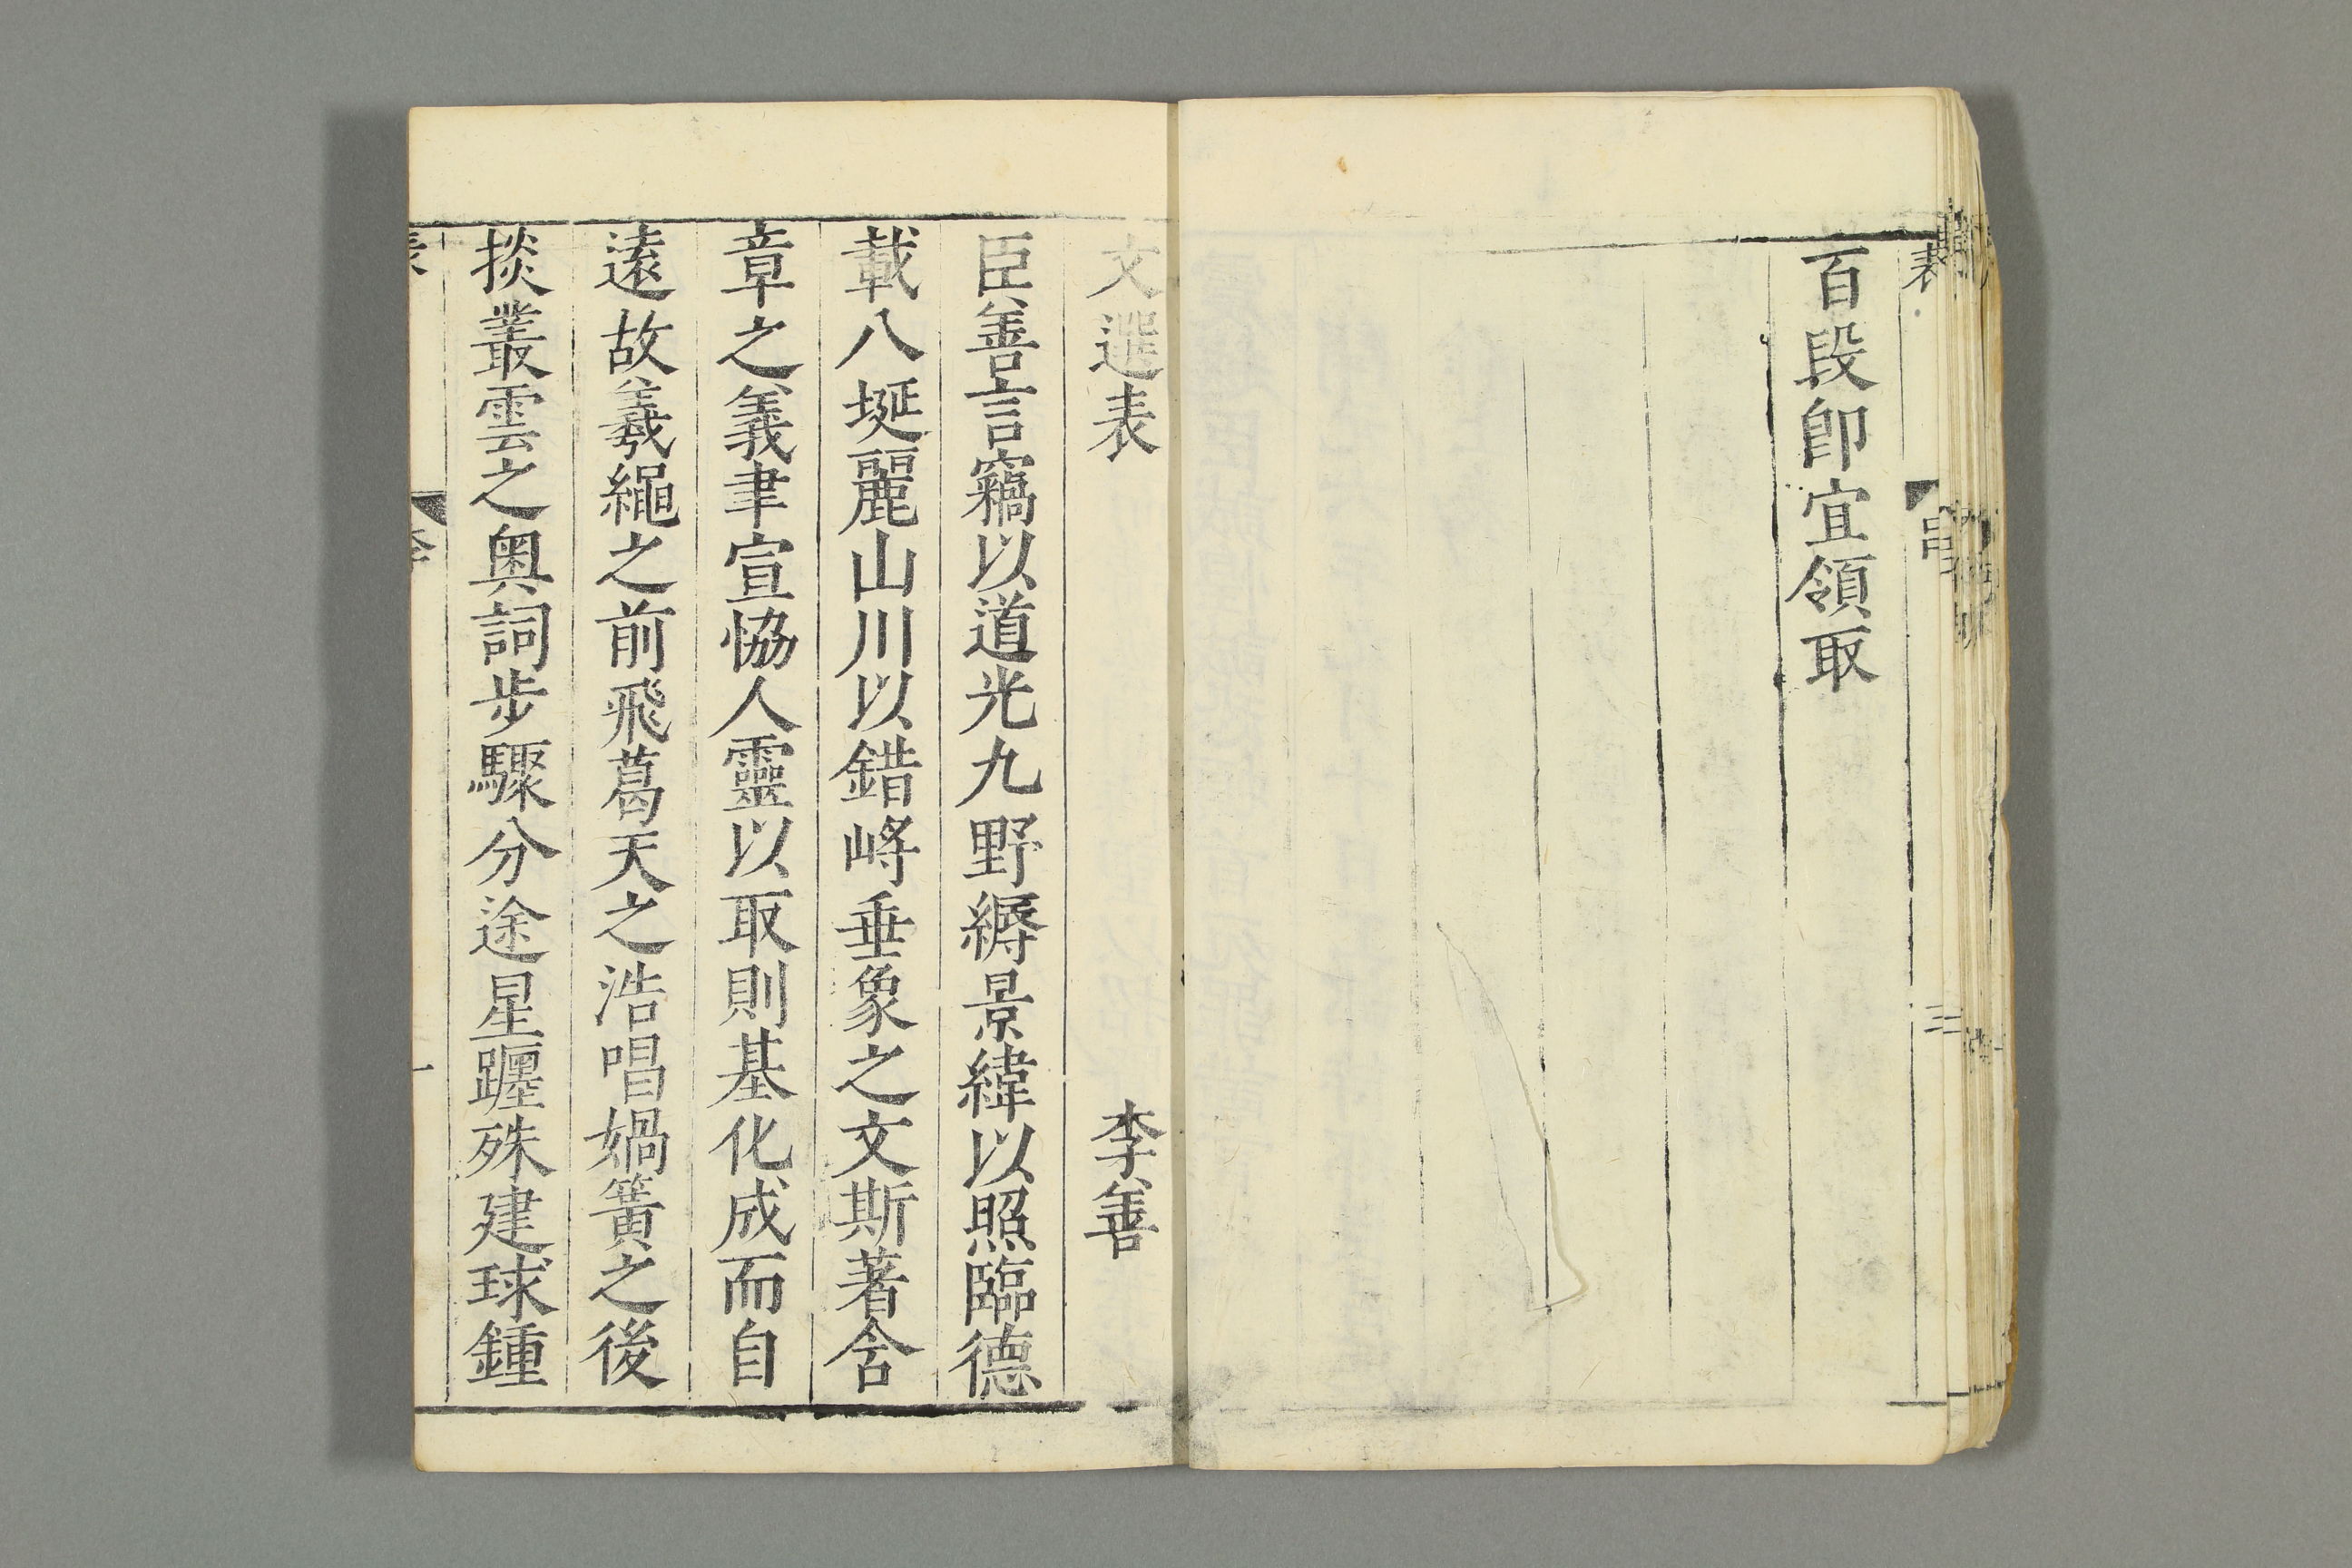 百段卽宜領取
文選表 李善
臣善言竊以道光九野縟景緯以照臨德
載八埏麗山川以錯峙垂象之文斯著含
章之義聿宣恊人靈以取則基化成而自
遠故羲繩之前飛葛天之浩唱媧簧之後
掞叢雲之奥詞步驟分途星躔殊建球鍾
表
三
表
一